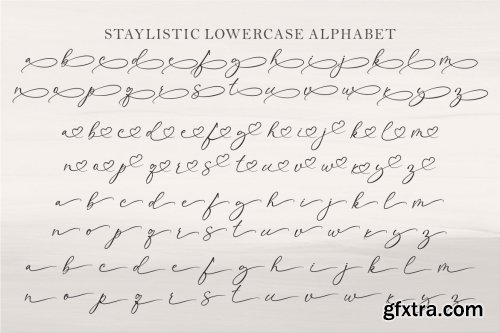 STAYLISTIC LOWERCASE ALPHABET
a b c d e f g h i j k l m
n o p q r s t u v w x y z
a b c d e f g h i j k l m
n o p q r s t u v w x y z
a b c d e f g h i j k l m
n o p q r s t u v w x y z
a b c d e f g h i j k l m
n o p q r s t u v w x y z
gfxtra.com